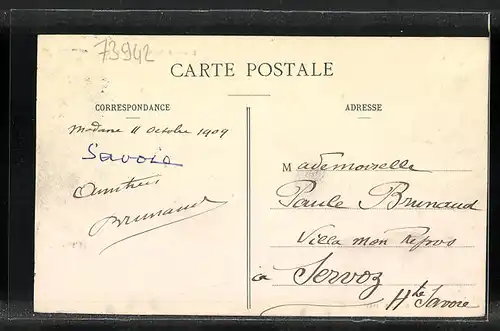 73942
CARTE POSTALE
CORRESPONDANCE
Modane 11 Octobre 1909
Savoie
Amitiés
Brunaud
ADRESSE
Mademoiselle
Paule Brunaud
Villa mon Repos
à Servoz
Hte Savoie